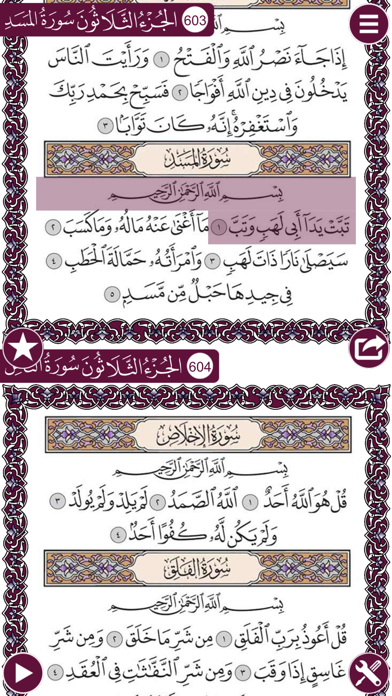 603 الجُزْءُ الثَّلَاثُونَ سُورَةُ المَسَدِ
بِسْمِ اللَّهِ الرَّحْمَٰنِ الرَّحِيمِ
إِذَا جَاءَ نَصْرُ اللَّهِ وَالْفَتْحُ ١ وَرَأَيْتَ النَّاسَ
يَدْخُلُونَ فِي دِينِ اللَّهِ أَفْوَاجًا ٢ فَسَبِّحْ بِحَمْدِ رَبِّكَ
وَاسْتَغْفِرْهُ ۚ إِنَّهُ كَانَ تَوَّابًا ٣
سُورَةُ المَسَدِ
بِسْمِ اللَّهِ الرَّحْمَٰنِ الرَّحِيمِ
تَبَّتْ يَدَا أَبِي لَهَبٍ وَتَبَّ ١ مَا أَغْنَىٰ عَنْهُ مَالُهُ وَمَا كَسَبَ ٢
سَيَصْلَىٰ نَارًا ذَاتَ لَهَبٍ ٣ وَامْرَأَتُهُ حَمَّالَةَ الْحَطَبِ ٤
فِي جِيدِهَا حَبْلٌ مِّن مَّسَدٍ ٥
604 الجُزْءُ الثَّلَاثُونَ سُورَةُ
سُورَةُ الإِخْلَاصِ
بِسْمِ اللَّهِ الرَّحْمَٰنِ الرَّحِيمِ
قُلْ هُوَ اللَّهُ أَحَدٌ ١ اللَّهُ الصَّمَدُ ٢ لَمْ يَلِدْ وَلَمْ يُولَدْ ٣
وَلَمْ يَكُن لَّهُ كُفُوًا أَحَدٌ ٤
سُورَةُ الفَلَقِ
بِسْمِ اللَّهِ الرَّحْمَٰنِ الرَّحِيمِ
قُلْ أَعُوذُ بِرَبِّ الْفَلَقِ ١ مِن شَرِّ مَا خَلَقَ ٢ وَمِن شَرِّ
غَاسِقٍ إِذَا وَقَبَ ٣ وَمِن شَرِّ النَّفَّاثَاتِ فِي الْعُقَدِ ٤